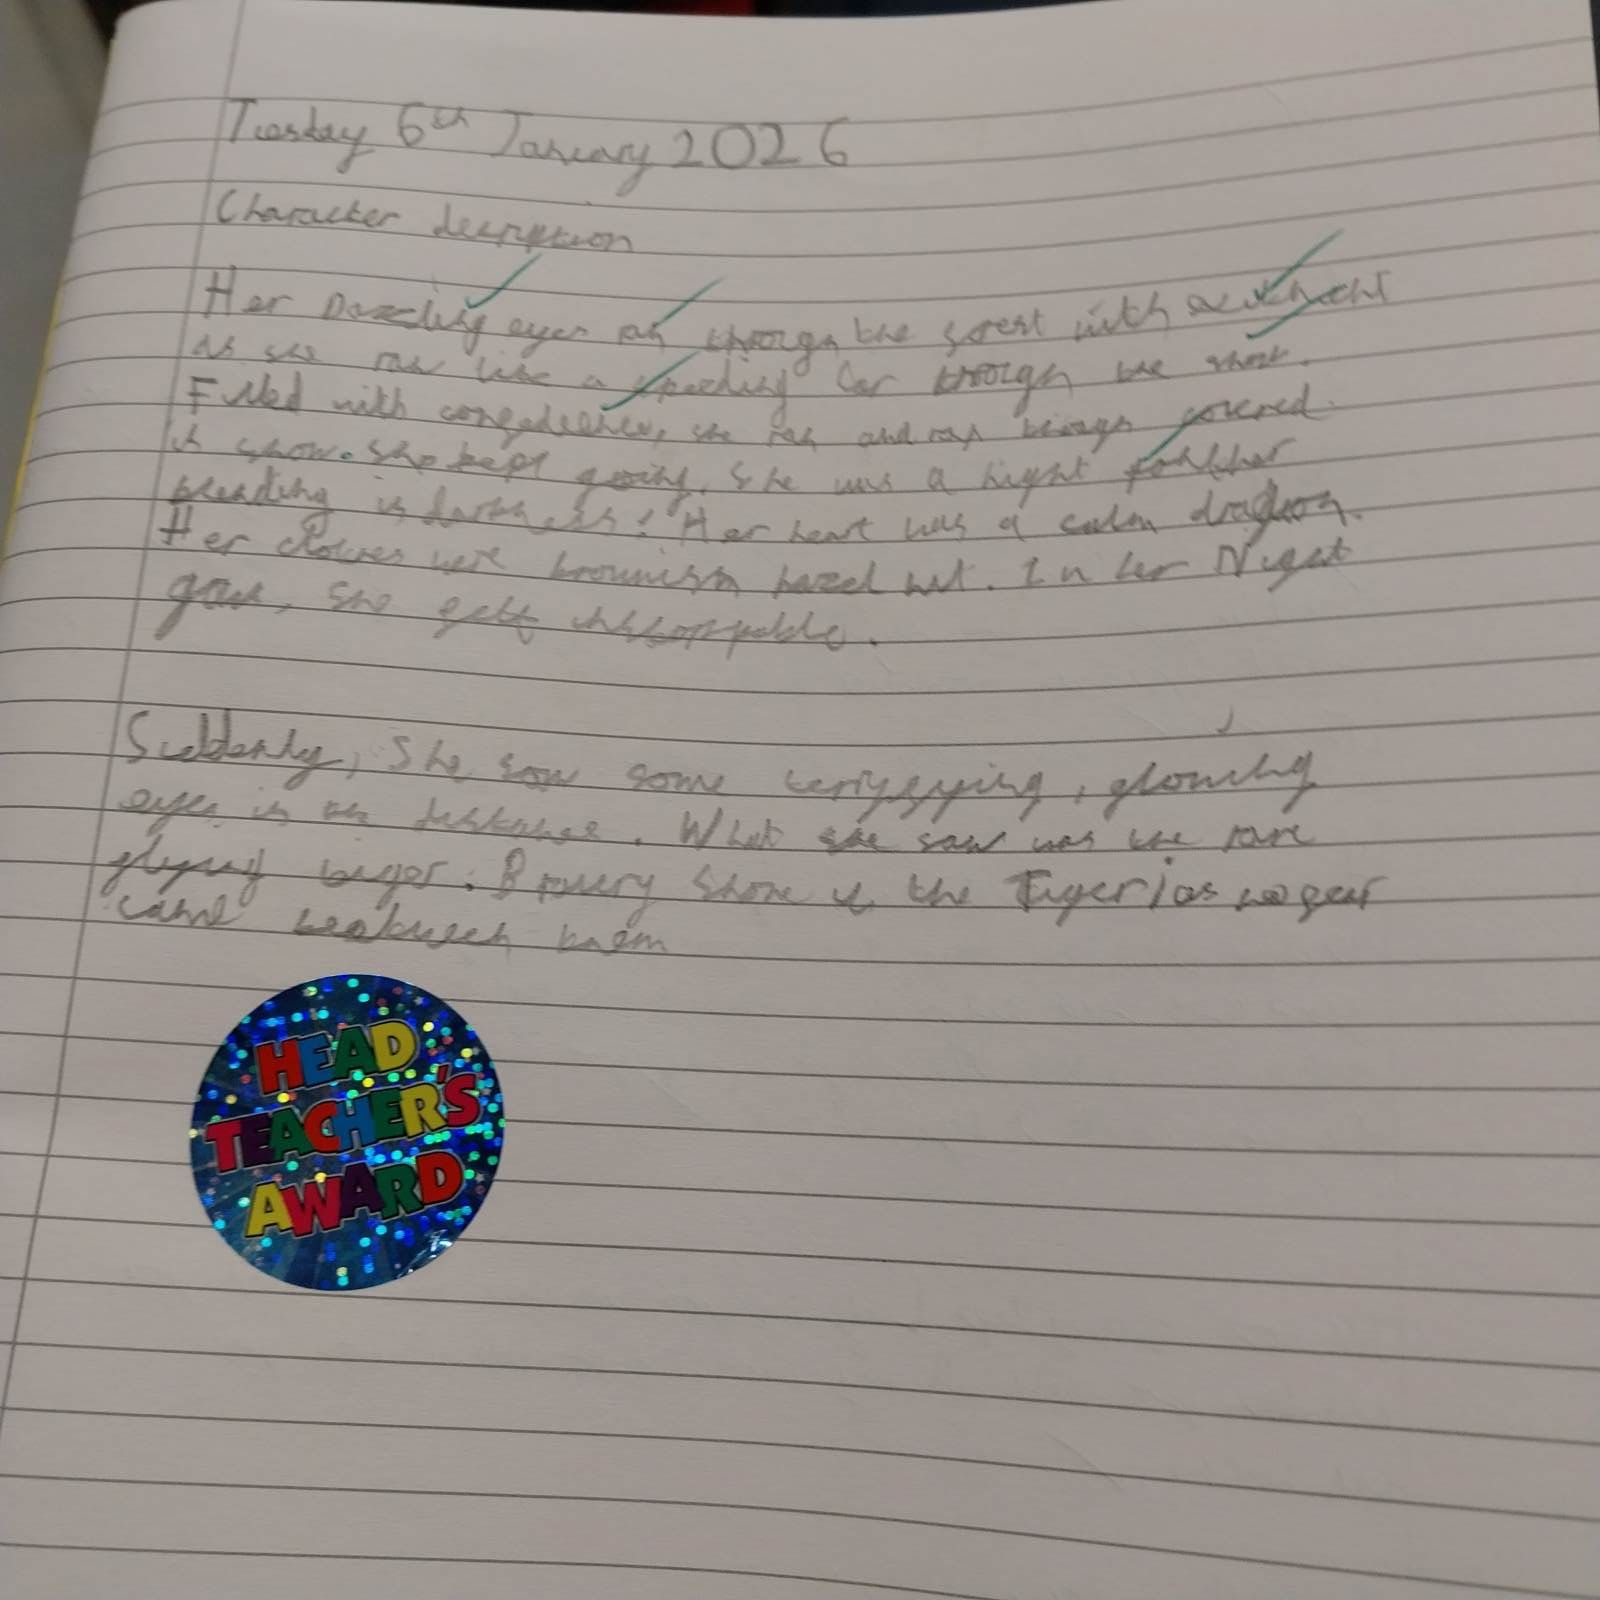 Tuesday 6th January 2026
Character decription
Her Dazzling eyes ran through the forest with
as she ran like a speeding car through the
Filled with she ran and ran through covered
in snow. She kept going. She was a night panther
bleading in darkness! Her heart was a calm dragon.
Her clothes were brownish hazel nut. In her Night
she felt
Suddenly, She saw some glowing
eyes in the distance. What she saw was the rare
flying tiger. Bravery shone in the Tiger as no fear
came between them
HEAD
TEACHER'S
AWARD